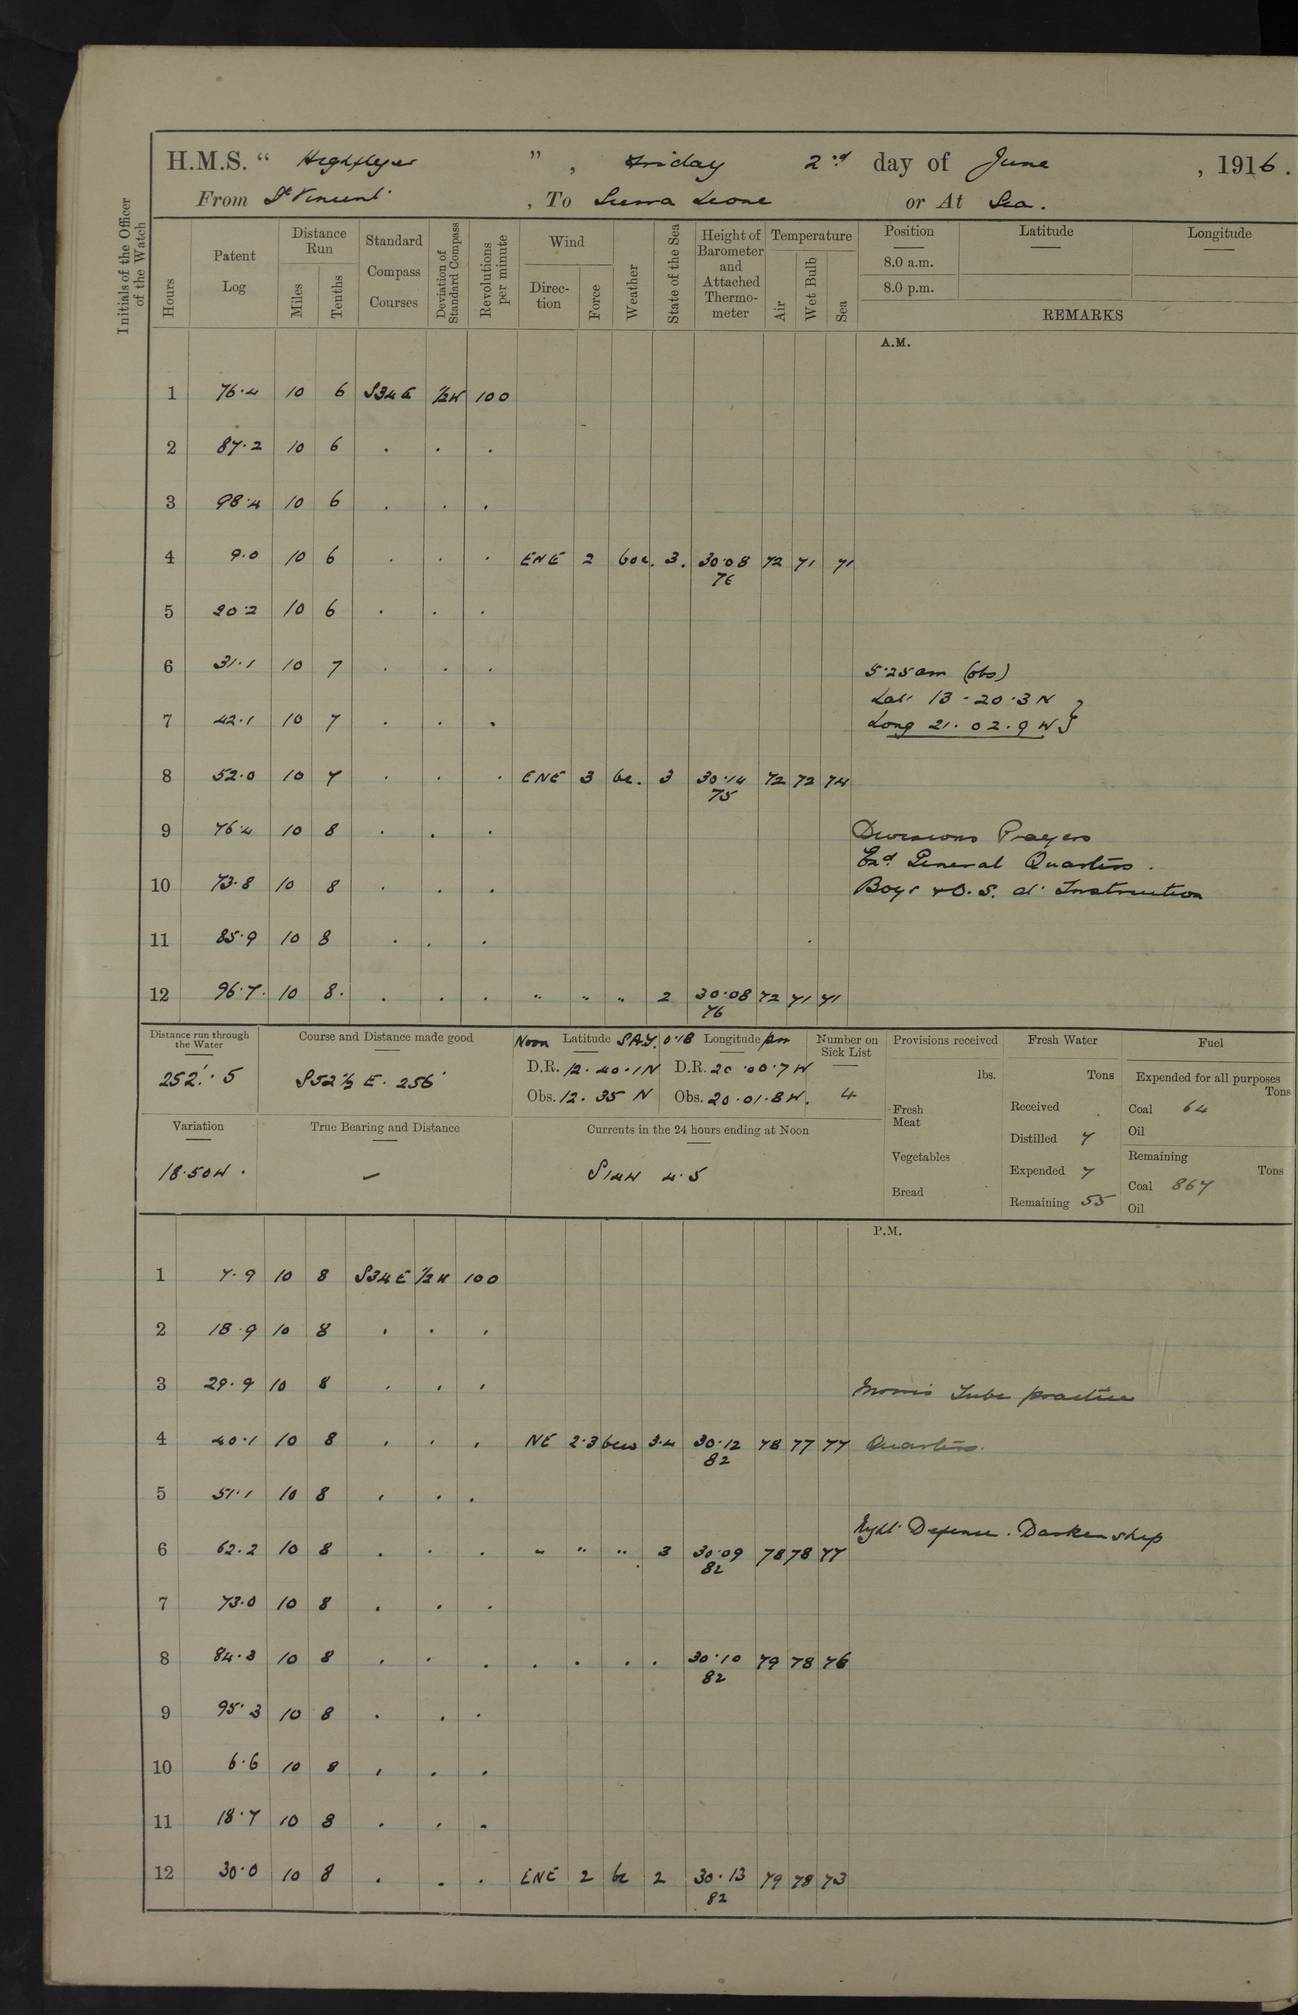 H.M.S. “ Highflyer ” , Friday 2nd day of June , 1916.
From St Vincent , To Sierra Leone or At Sea.
Initials of the Officer of the Watch
Hours
Patent Log
Distance Run
Miles
Tenths
Standard Compass Courses
Deviation of Standard Compass
Revolutions per minute
Wind
Direction
Force
Weather
State of the Sea
Height of Barometer and Attached Thermometer
Temperature
Air
Wet Bulb
Sea
Position
Latitude
Longitude
8.0 a.m.
8.0 p.m.
REMARKS
A.M.
1 76.4 10 6 S34E ½W 100
2 87.2 10 6 . . .
3 98.4 10 6 . . .
4 9.0 10 6 . . . ENE 2 boc. 3. 30.08 72 71 71
76
5 20.2 10 6 . . .
6 31.1 10 7 . . .
5.25 am (obs)
Lat 13-20.3 N
7 42.1 10 7 . . . Long 21.02.9 W
8 52.0 10 7 . . . ENE 3 bc. 3 30.14 72 72 74
75
9 76.4 10 8 . . . Divisions Prayers
Exd. General Quarters.
10 73.8 10 8 . . . Boys & O.S. at Instruction
11 85.9 10 8 . . .
12 96.7. 10 8. . . . " " " 2 30.08 72 71 71
76
Distance run through the Water
252'.5
Course and Distance made good
S52½E. 256'
Noon Latitude SAY. 0.18 Longitude pm
D.R. 12.40.1N D.R. 20.00.7W
Obs. 12.35 N Obs. 20.01.8W.
Number on Sick List
4
Provisions received
lbs.
Fresh Meat
Vegetables
Bread
Fresh Water
Tons
Received
Distilled 7
Expended 7
Remaining 55
Fuel
Expended for all purposes
Tons
Coal 64
Oil
Remaining
Tons
Coal 867
Oil
Variation
18.50W.
True Bearing and Distance
–
Currents in the 24 hours ending at Noon
S14W 4.5
P.M.
1 7.9 10 8 S34E ½W 100
2 18.9 10 8 . . .
3 29.9 10 8 . . . Morris Tube practice
4 40.1 10 8 . . . NE 2.3 bcw 3.4 30.12 78 77 77 Quarters.
82
5 51.1 10 8 . . .
Night Defence. Darken ship
6 62.2 10 8 . . . " " " 3 30.09 78 78 77
82
7 73.0 10 8 . . .
8 84.3 10 8 . . . . . . . 30.10 79 78 76
82
9 95.3 10 8 . . .
10 6.6 10 8 . . .
11 18.7 10 8 . . .
12 30.0 10 8 . . . ENE 2 bc 2 30.13 79 78 73
82